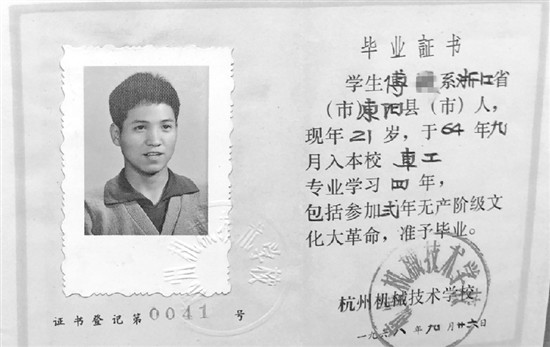 毕业証书
学生傅 系浙江省
(市)東阳县(市)人,
现年21岁,于64年九
月入本校 車工
专业学习四年,
包括参加弍年无产阶级文
化大革命,准予毕业。
杭州机械技术学校
一九六八年九月廿六日
证书登记第0041号